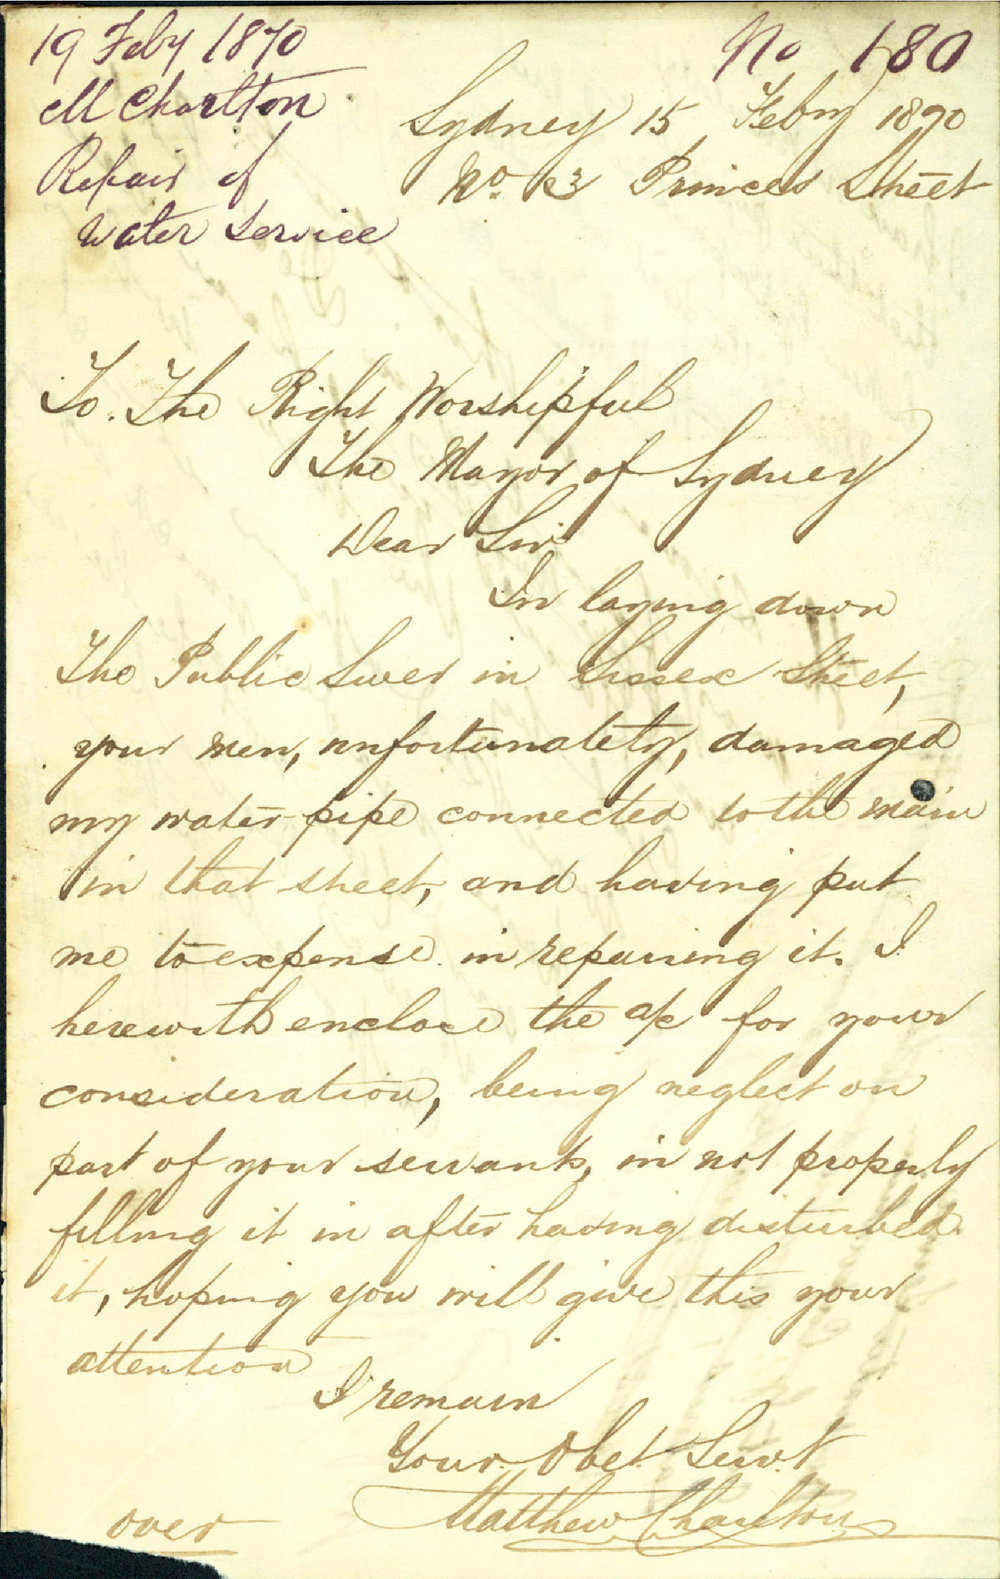 19 Feby 1870
M Charlton
Repair of
Water Service
No 180
Sydney 15 Feby 1870
No. 3 Princes Street
To. The Right Worshipful
The Mayor of Sydney
Dear Sir
In laying down
The Public Suer in Sussex Street,
your men, unfortunately, damaged
my water pipe connected to the main
in that street, and having put
me to expense in repairing it. I
herewith enclose the a/c for your
consideration, being neglect on
part of your servants, in not properly
filling it in after having disturbed
it, hoping you will give this your
attention
I remain
Your Obet Servt
Matthew Charlton
over